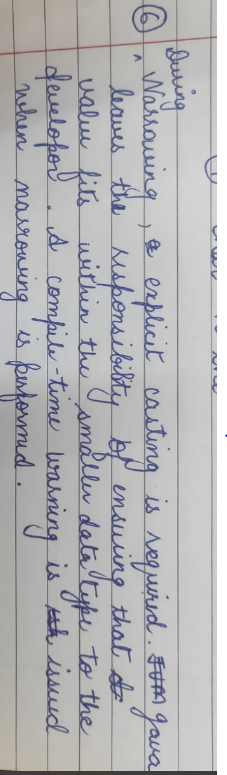 ⑥ During Narrowing, explicit casting is required. Java
leaves the responsibility of ensuring that
value fits within the smaller data type to the
developer. A compile-time warning is issued
when narrowing is performed.